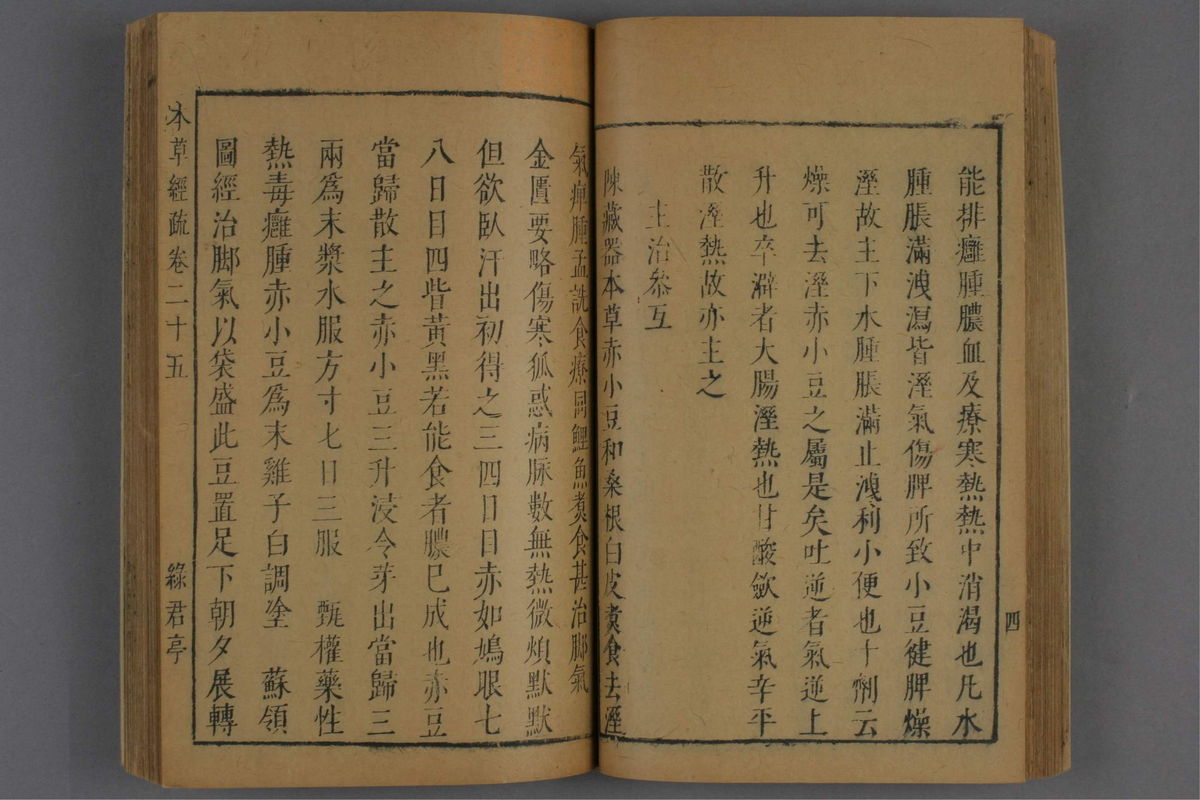 能排癰腫膿血及療寒熱熱中消渴也凡水
腫脹滿洩瀉皆溼氣傷脾所致小豆健脾燥
溼故主下水腫脹滿止洩利小便也十劑云
燥可去溼赤小豆之屬是矣吐逆者氣逆上
升也卒澼者大腸溼熱也甘酸歛逆氣辛平
散溼熱故亦主之
主治叅互
陳藏器本草赤小豆和桑根白皮煑食去溼
四
氣痺腫孟詵食療同鯉魚煑食甚治脚氣
金匱要略傷寒狐惑病脉數無熱微煩默默
但欲臥汗出初得之三四日目赤如鳩眼七
八日目四眥黃黑若能食者膿巳成也赤豆
當歸散主之赤小豆三升浸令芽出當歸三
兩爲末漿水服方寸七日三服 甄權藥性
熱毒癰腫赤小豆爲末雞子白調塗 蘇頌
圖經治脚氣以袋盛此豆置足下朝夕展轉
本草經疏卷二十五 綠君亭